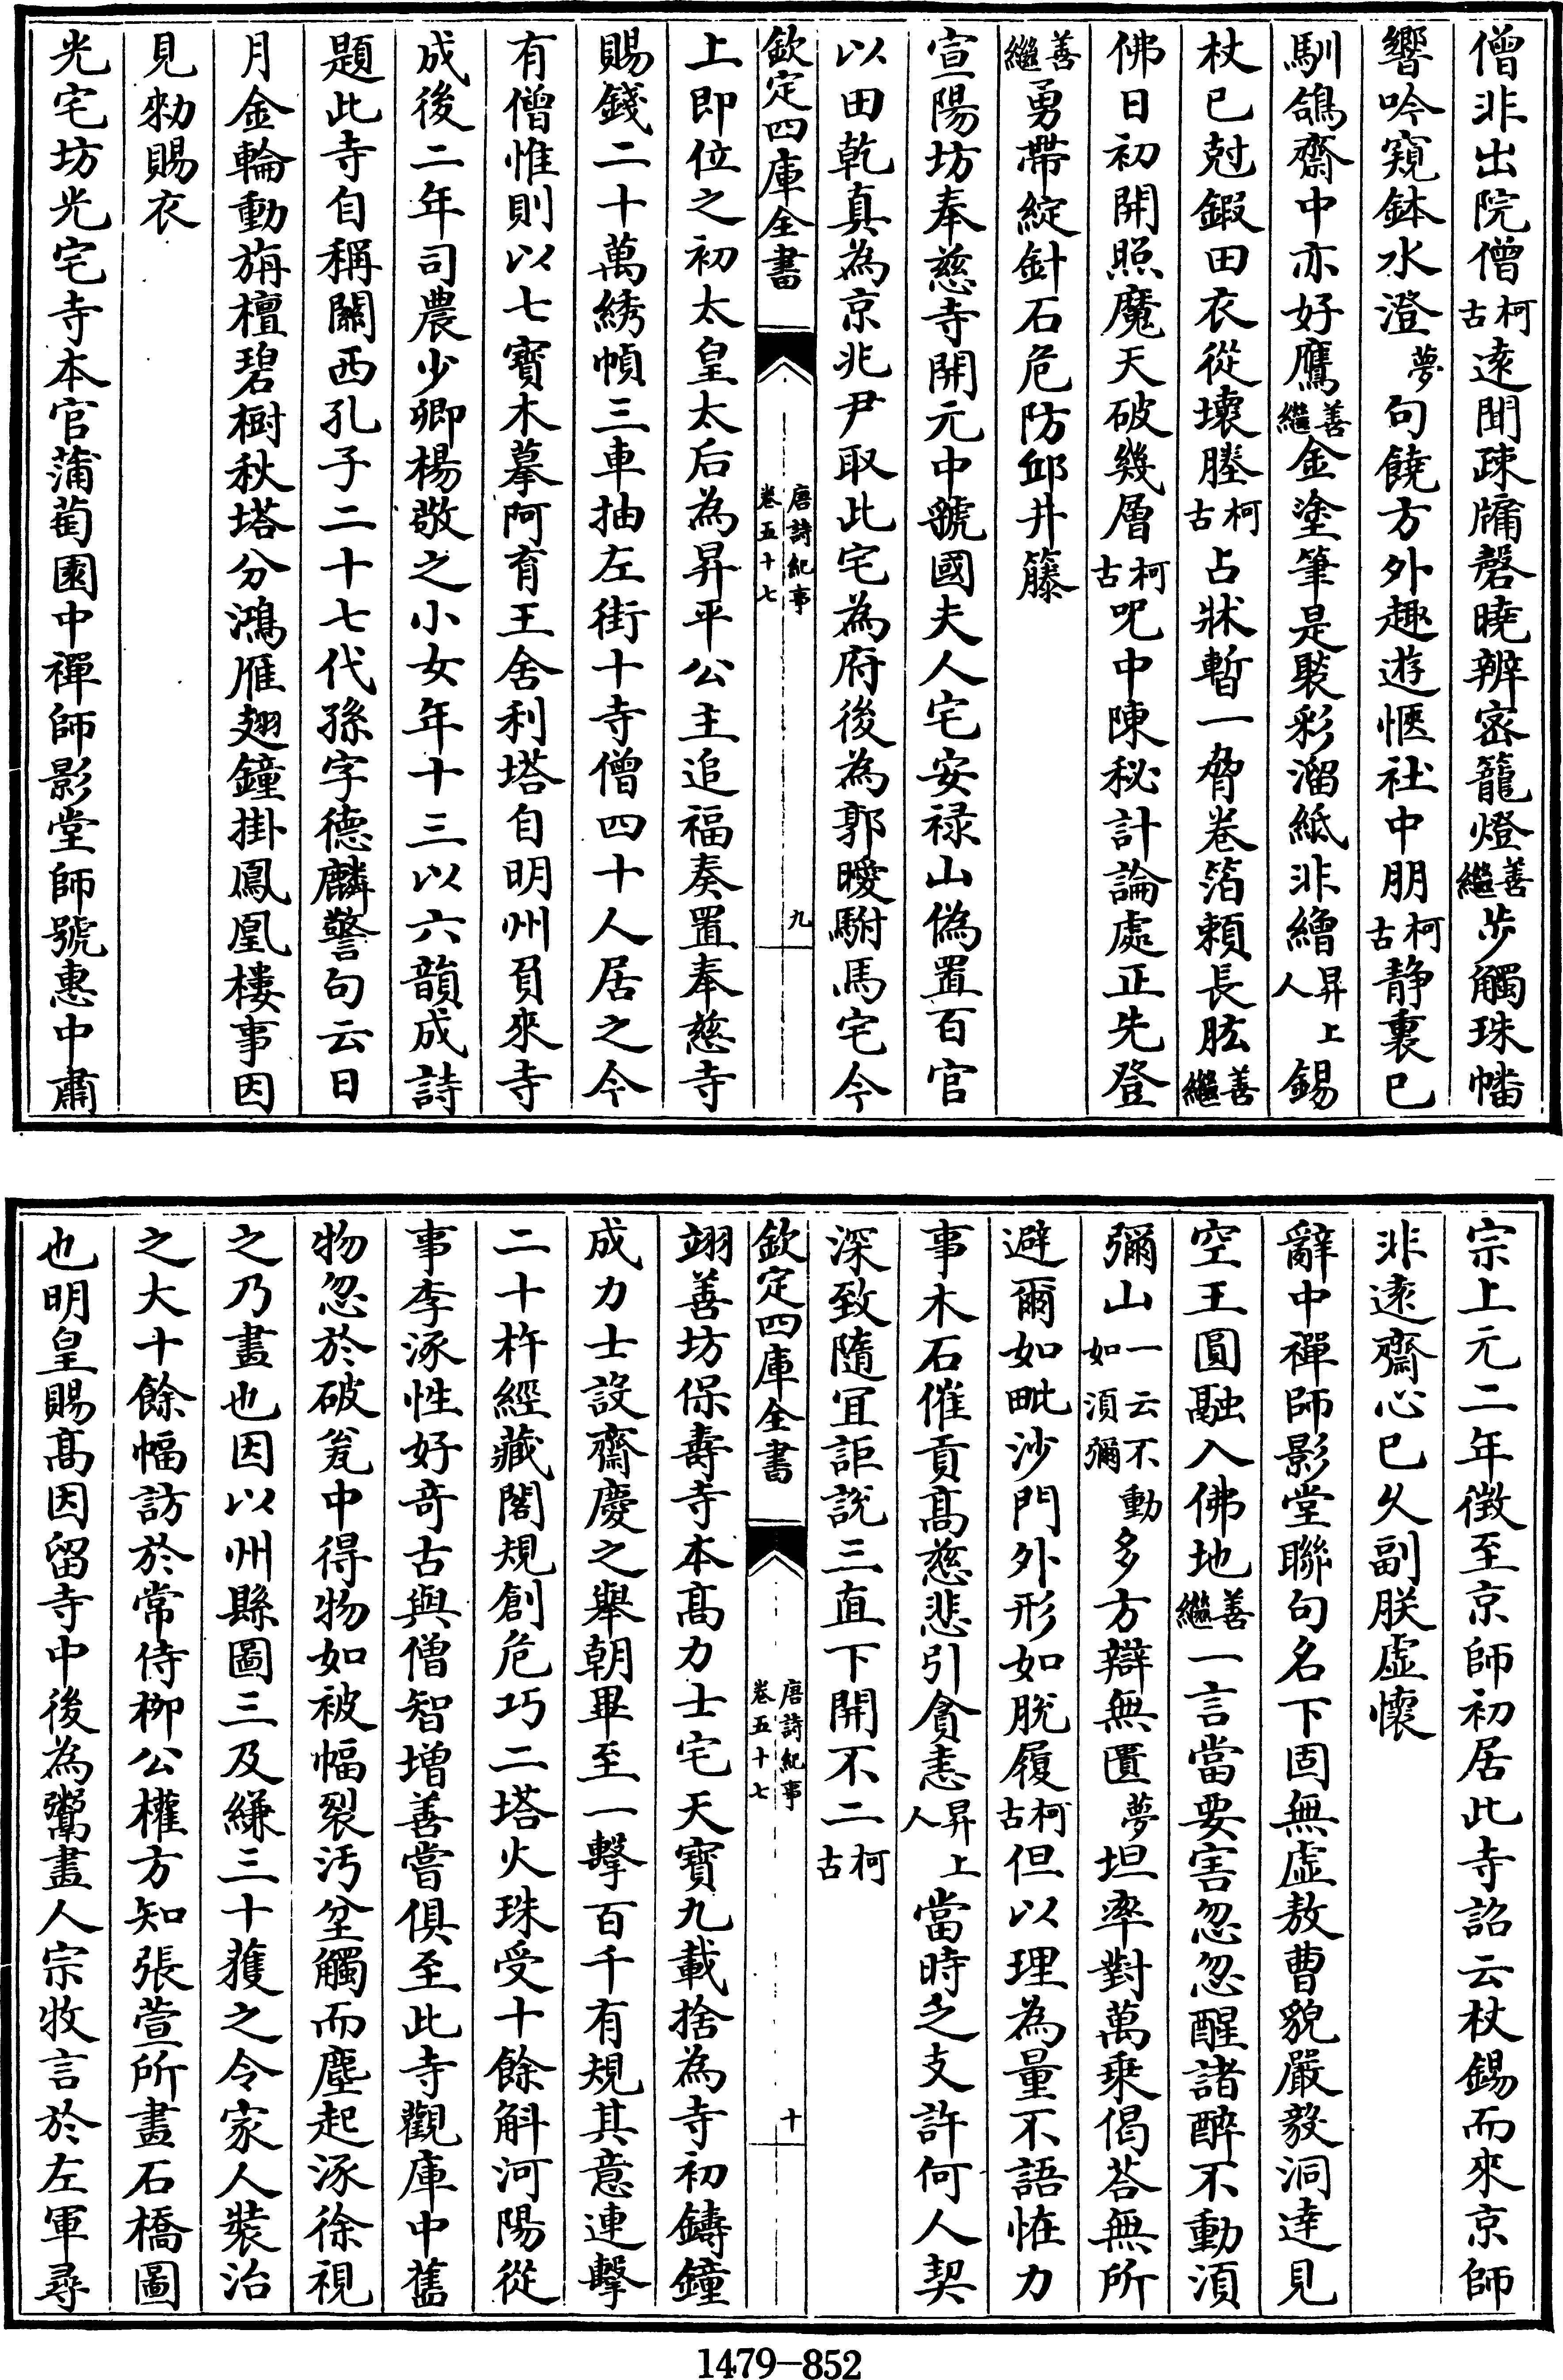 僧非出院僧柯古遠聞疎牗磬曉辨密籠燈善繼步觸珠幡
響吟窺鉢水澄夢句饒方外趣遊愜社中朋柯古静裏已
馴鴿齋中亦好鷹善繼金塗筆是褧彩溜紙非繒昇上人錫
杖已尅鍜田衣從壞塍柯古占牀暫一脅卷箔賴長肱善繼
佛日初開照魔天破幾層柯古呪中陳秘計論處正先登
善繼勇帶綻針石危防邱井籐
宣陽坊奉慈寺開元中虢國夫人宅安禄山偽置百官
以田乾真為京兆尹取此宅為府後為郭曖駙馬宅今
欽定四庫全書
唐詩紀事
卷五十七
九
上即位之初太皇太后為昇平公主追福奏置奉慈寺
賜錢二十萬綉幀三車抽左街十寺僧四十人居之今
有僧惟則以七寳木摹阿育王舍利塔自明州負來寺
成後二年司農少卿楊敬之小女年十三以六韻成詩
題此寺自稱關西孔子二十七代孫字德麟警句云日
月金輪動旃檀碧樹秋塔分鴻雁翅鐘掛鳳凰樓事因
見勑賜衣
光宅坊光宅寺本官蒲萄園中禪師影堂師號惠中肅
宗上元二年徴至京師初居此寺詔云杖錫而來京師
非遠齋心已乆副朕虚懷
辭中禪師影堂聯句名下固無虚敖曹貌嚴毅洞達見
空王圓融入佛地善繼一言當要害忽忽醒諸醉不動湏
彌山一云不動如湏彌多方辯無匱夢坦率對萬乗偈荅無所
避爾如毗沙門外形如脱履柯古但以理為量不語怪力
事木石催貢髙慈悲引貪恚昇上人當時乏支許何人契
深致隨宜詎説三直下開不二柯古
欽定四庫全書
唐詩紀事
卷五十七
十
翊善坊保夀寺本髙力士宅天寳九載捨為寺初鑄鐘
成力士設齋慶之舉朝畢至一擊百千有規其意連擊
二十杵經藏閣規創危巧二塔火珠受十餘斛河陽從
事李涿性好竒古與僧智增善嘗俱至此寺觀庫中舊
物忽於破瓮中得物如被幅裂汚坌觸而塵起涿徐視
之乃畫也因以州縣圖三及縑三十獲之令家人裝治
之大十餘幅訪於常侍柳公權方知張萱所畫石橋圖
也明皇賜髙因留寺中後為鬻畫人宗牧言於左軍尋
1479-852